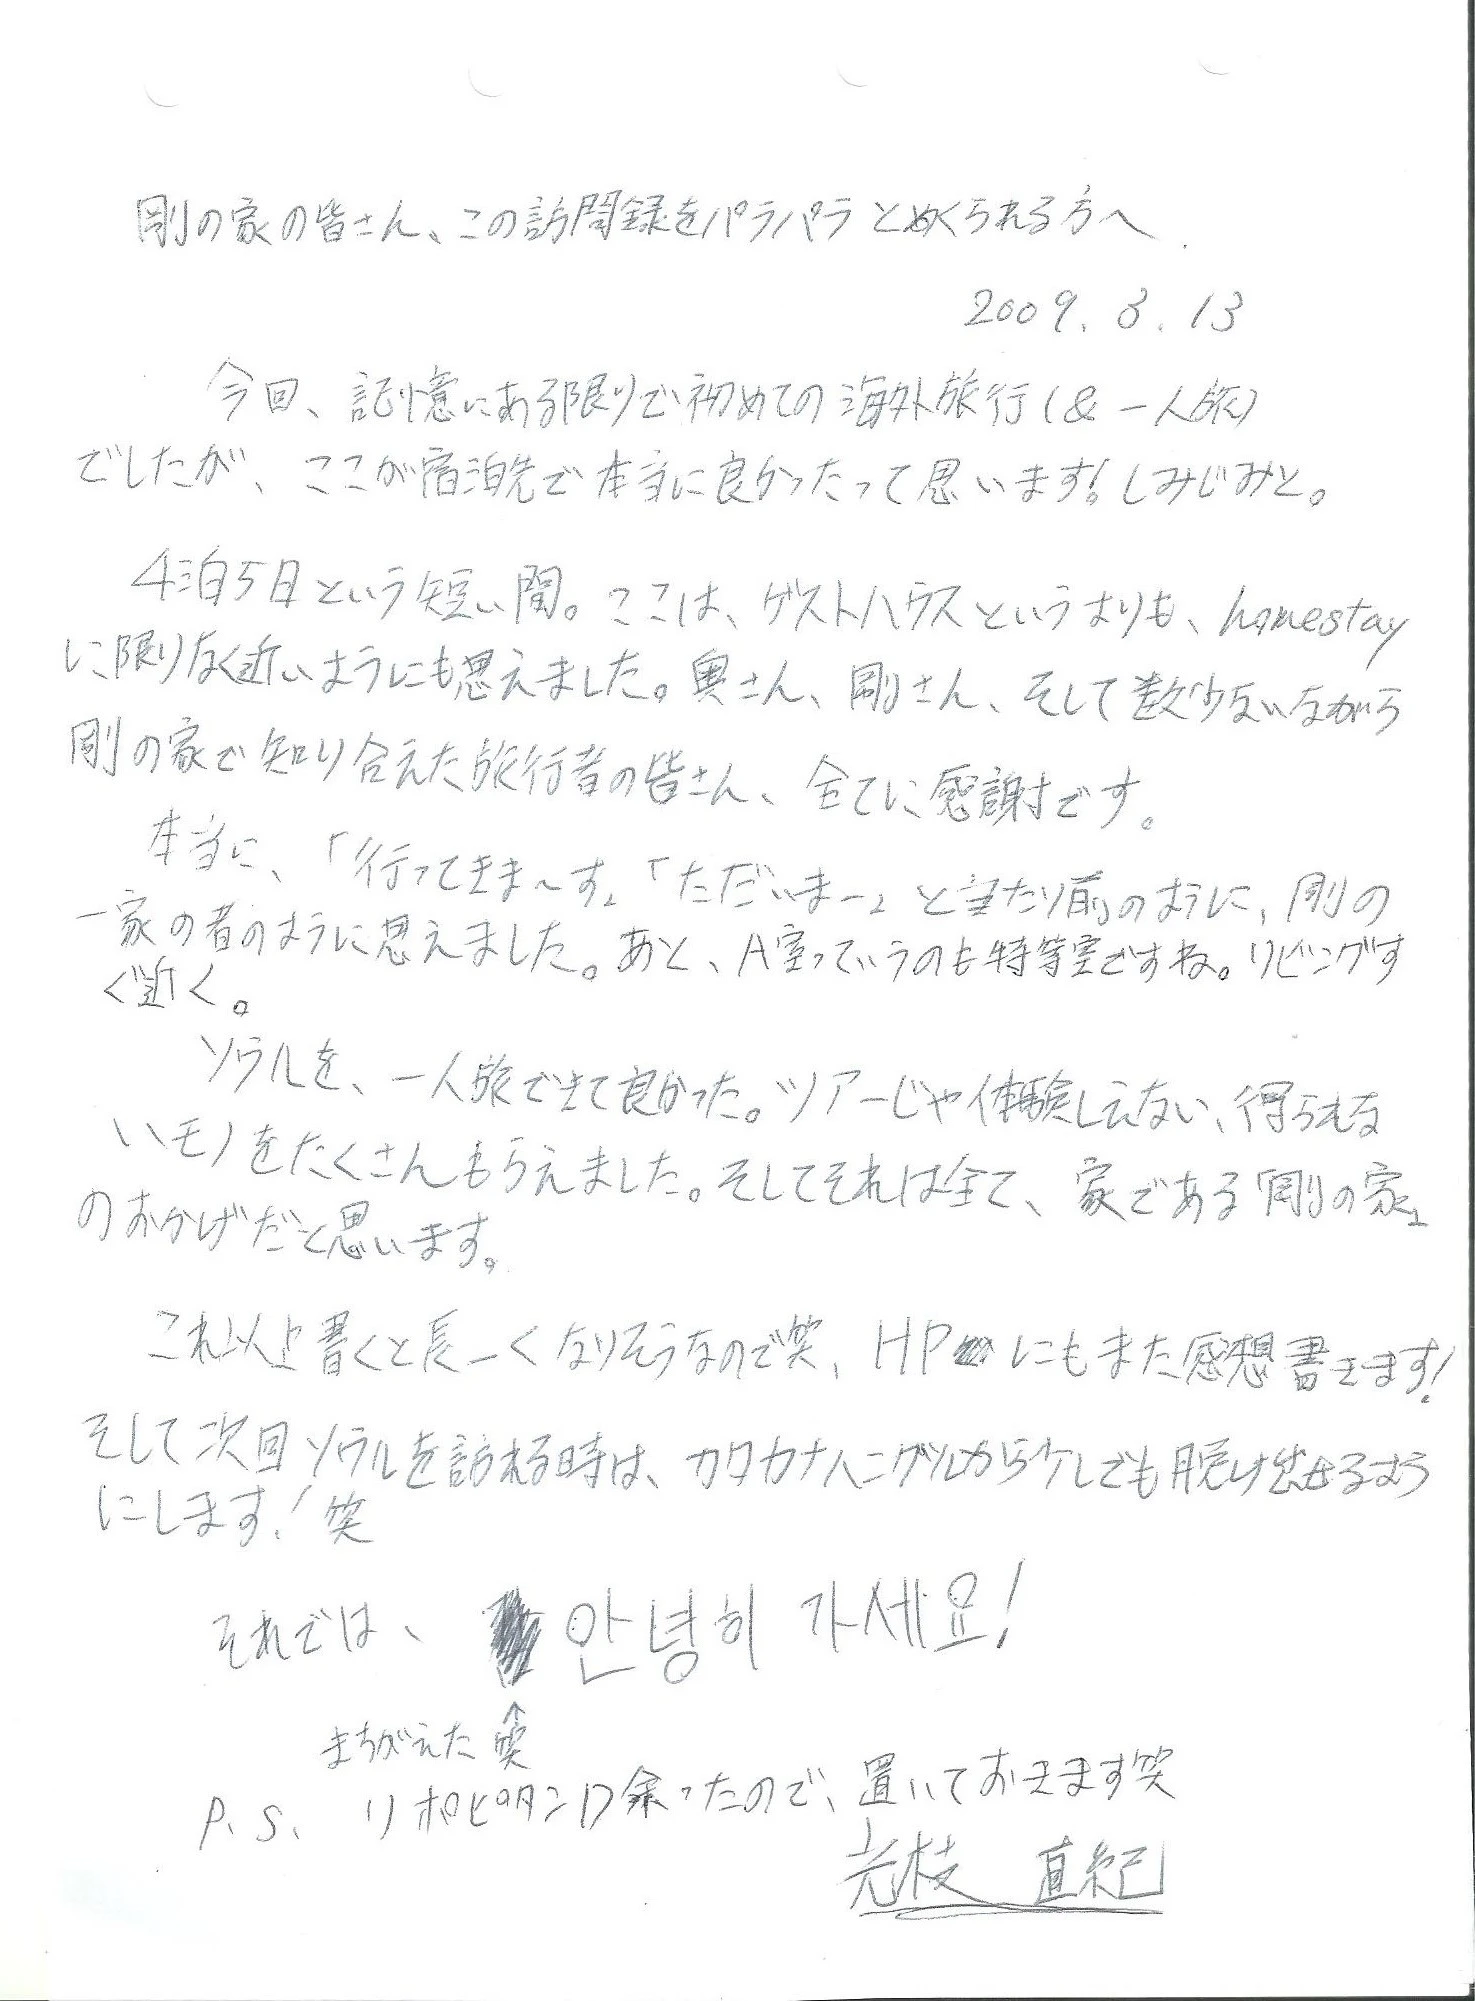 剛の家の皆さん、この訪問録をパラパラとめくられる方へ
2009. 8. 13
今回、記憶にある限りで初めての海外旅行(& 一人旅)
でしたが、ここが宿泊先で本当に良かったって思います!しみじみと。
4泊5日という短い間。ここは、ゲストハウスというよりも、homestay
に限りなく近いようにも思えました。奥さん、剛さん、そして数少ないながら
剛の家で知り合えた旅行者の皆さん、全てに感謝です。
本当に、「行ってきま〜す」「ただいまー」と当たり前のように、剛の
一家の者のように思えました。あと、A室っていうのも特等室ですね。リビングす
ぐ近く。
ソウルを、一人旅できて良かった。ツアーじゃ体験しえない、得られな
いモノをたくさんもらえました。そしてそれは全て、家である「剛の家」
のおかげだと思います。
これ以上書くと長ーくなりそうなので笑、HPにもまた感想書きます!
そして次回ソウルを訪れる時は、カタカナハングルから少しでも脱け出せるよう
にします!笑
それでは、안녕히 가세요!
まちがえた笑↑
P.S. リポビタンD余ったので、置いておきます笑
光枝 直紀